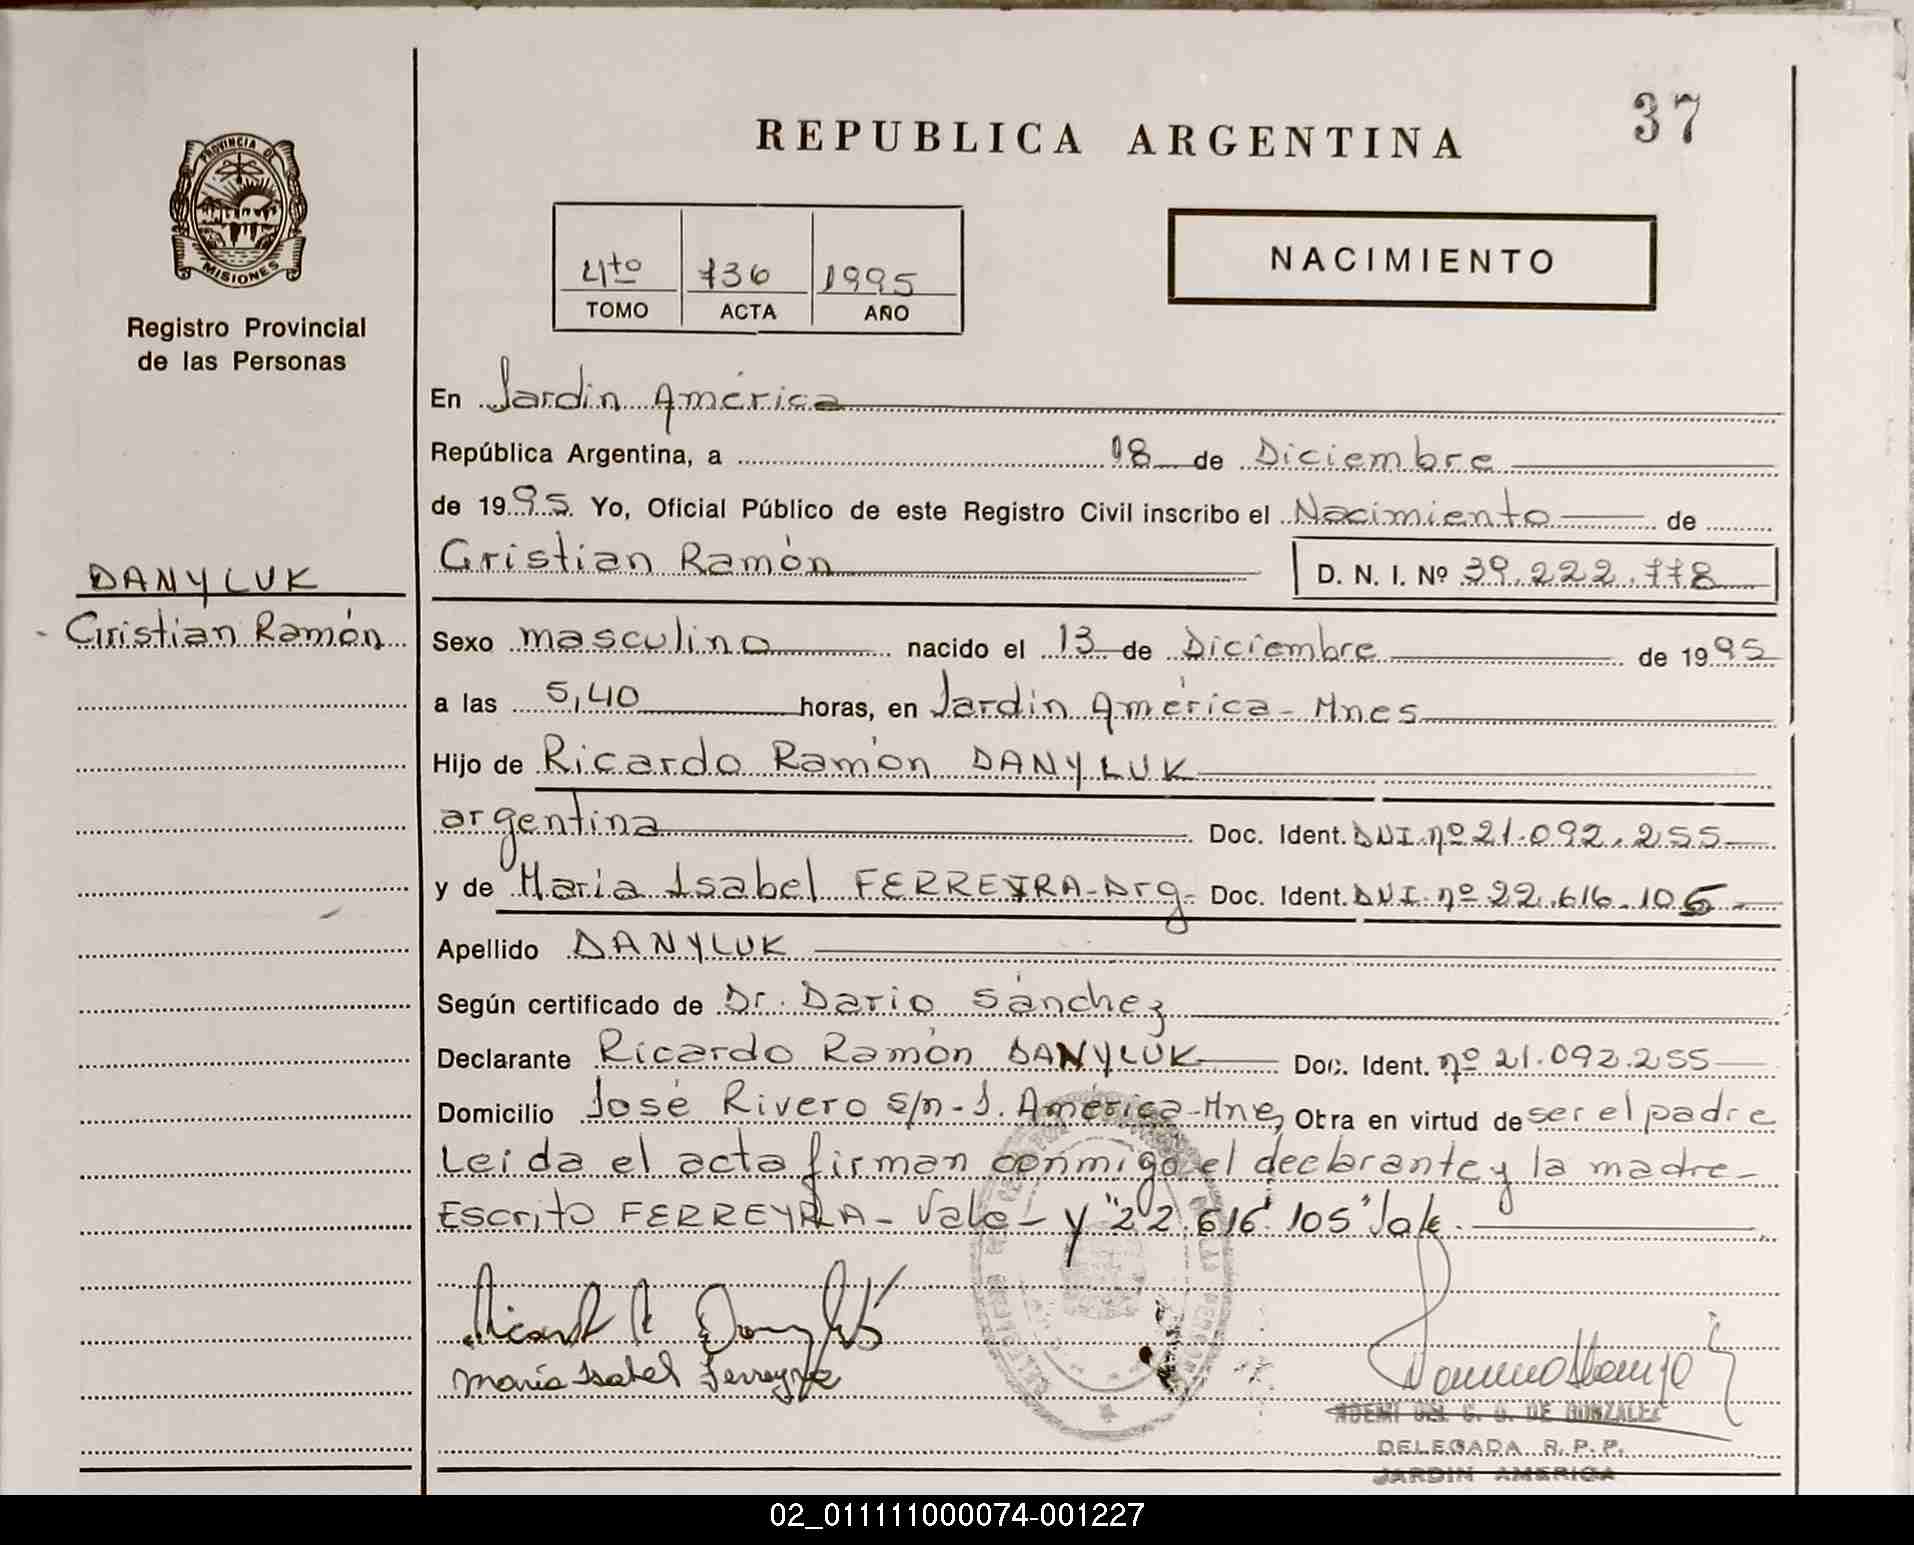 37
REPUBLICA ARGENTINA
PROVINCIA DE
MISIONES
Registro Provincial
de las Personas
4to 736 1995
TOMO ACTA AÑO
NACIMIENTO
En Jardin América
República Argentina, a 18 de Diciembre
de 1995 Yo, Oficial Público de este Registro Civil inscribo el Nacimiento de
Cristian Ramón D. N. I. Nº 39.222.778
DANYLUK
Cristian Ramón
Sexo masculino nacido el 13 de Diciembre de 1995
a las 5,40 horas, en Jardin América - Mnes
Hijo de Ricardo Ramón DANYLUK
argentina Doc. Ident. DNI. nº 21.092.255
y de Maria Isabel FERREYRA-Arg- Doc. Ident. DNI. nº 22.616.105
Apellido DANYLUK
Según certificado de Dr. Dario Sánchez
Declarante Ricardo Ramón DANYLUK Doc. Ident. nº 21.092.255
Domicilio José Rivero s/n - J. América-Mnes Obra en virtud de ser el padre
Leida el acta firman conmigo el declarante y la madre-
Escrito FERREYRA - Vale - y "22.616.105" Vale.
Maria Isabel Ferreyra
NOEMI DEL C. G. DE GONZALEZ
DELEGADA R. P. P.
JARDIN AMERICA
02_011111000074-001227